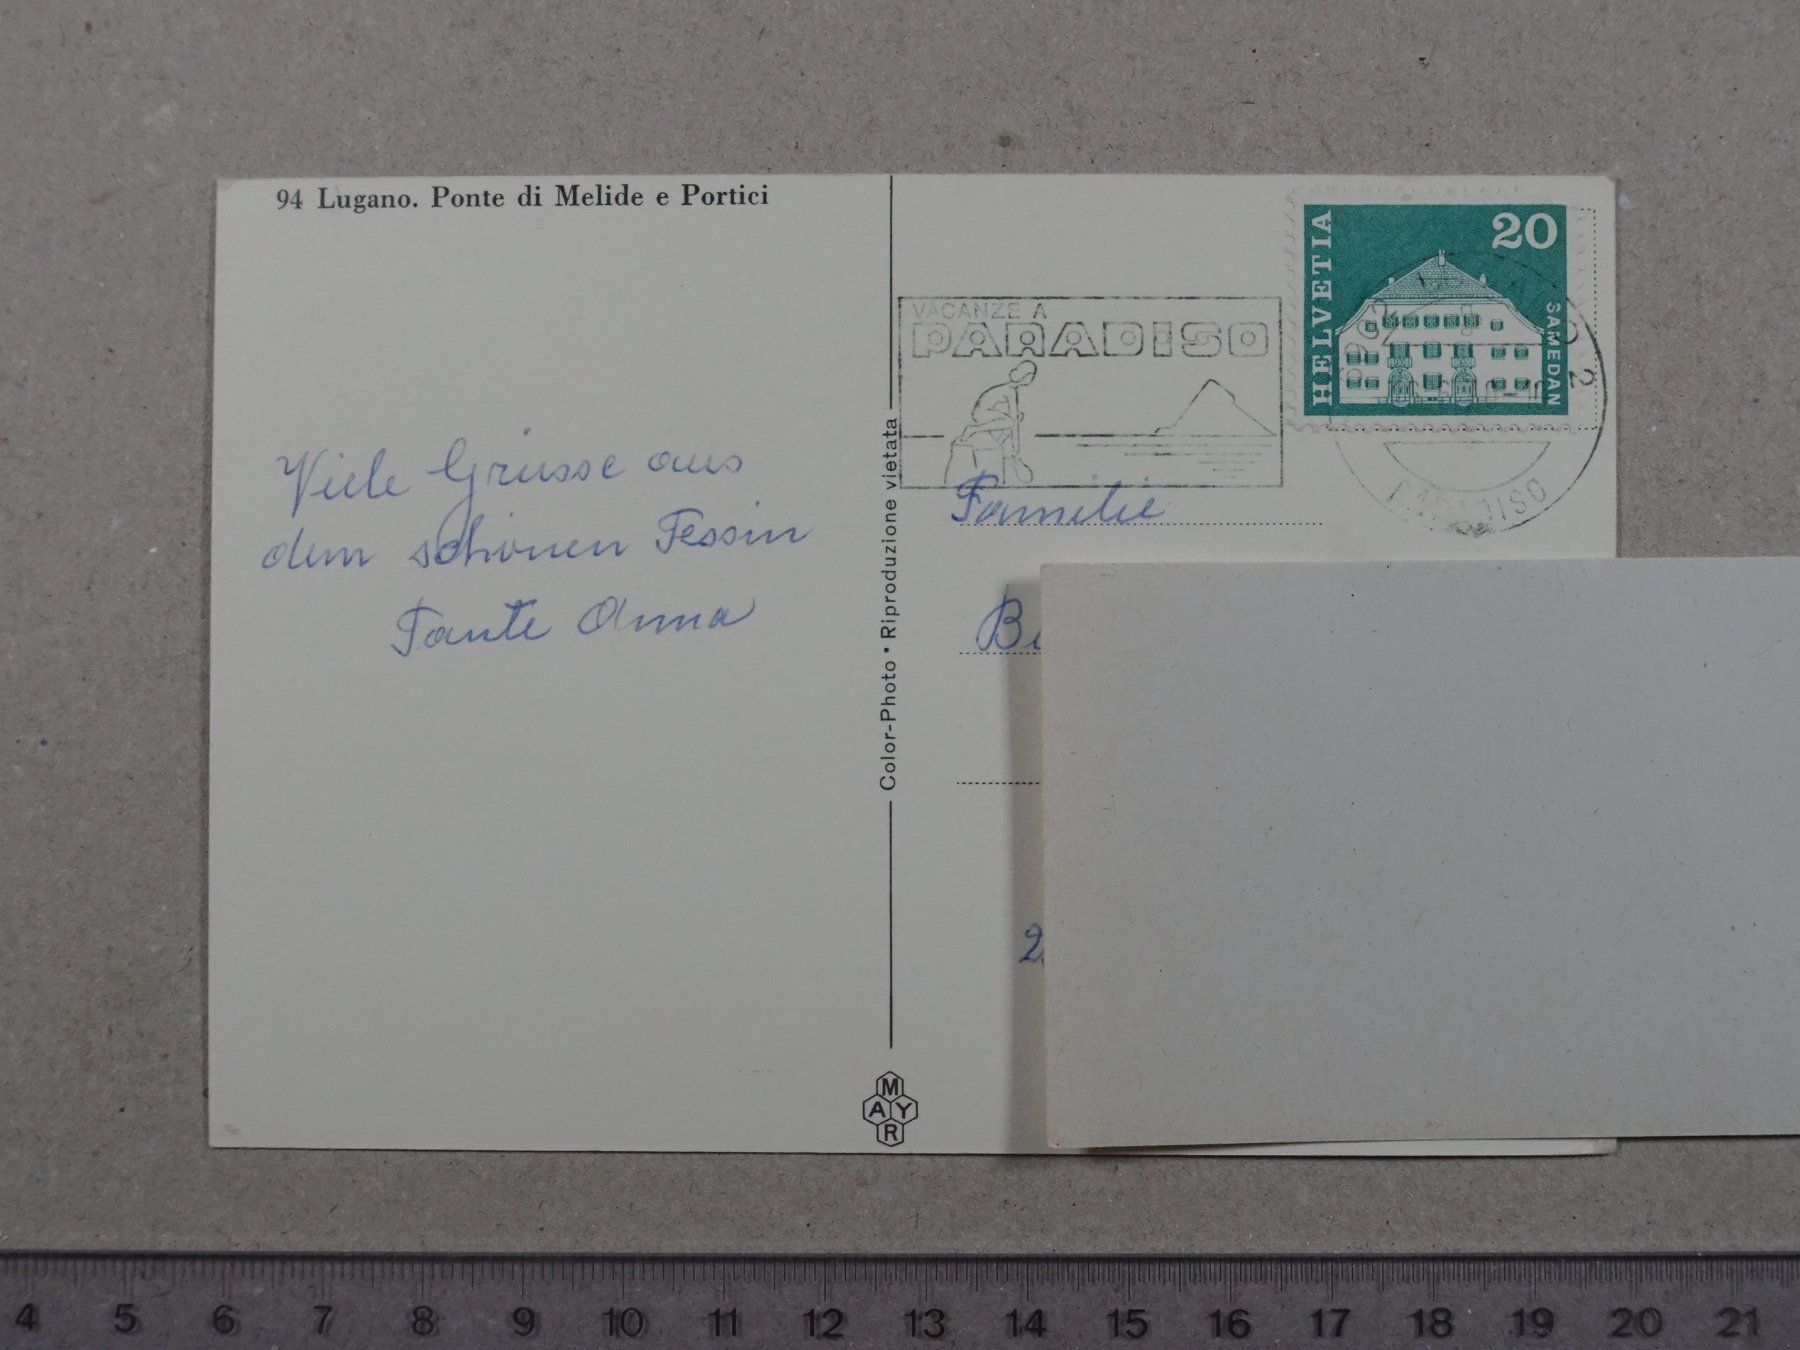 94 Lugano. Ponte di Melide e Portici
Viele Grüsse aus
dem schönen Tessin
Tante Anna
Color-Photo • Riproduzione vietata
MAYR
VACANZE A
PARADISO
HELVETIA
20
SAMEDAN
2
PARADISO
Familie
4 5 6 7 8 9 10 11 12 13 14 15 16 17 18 19 20 21